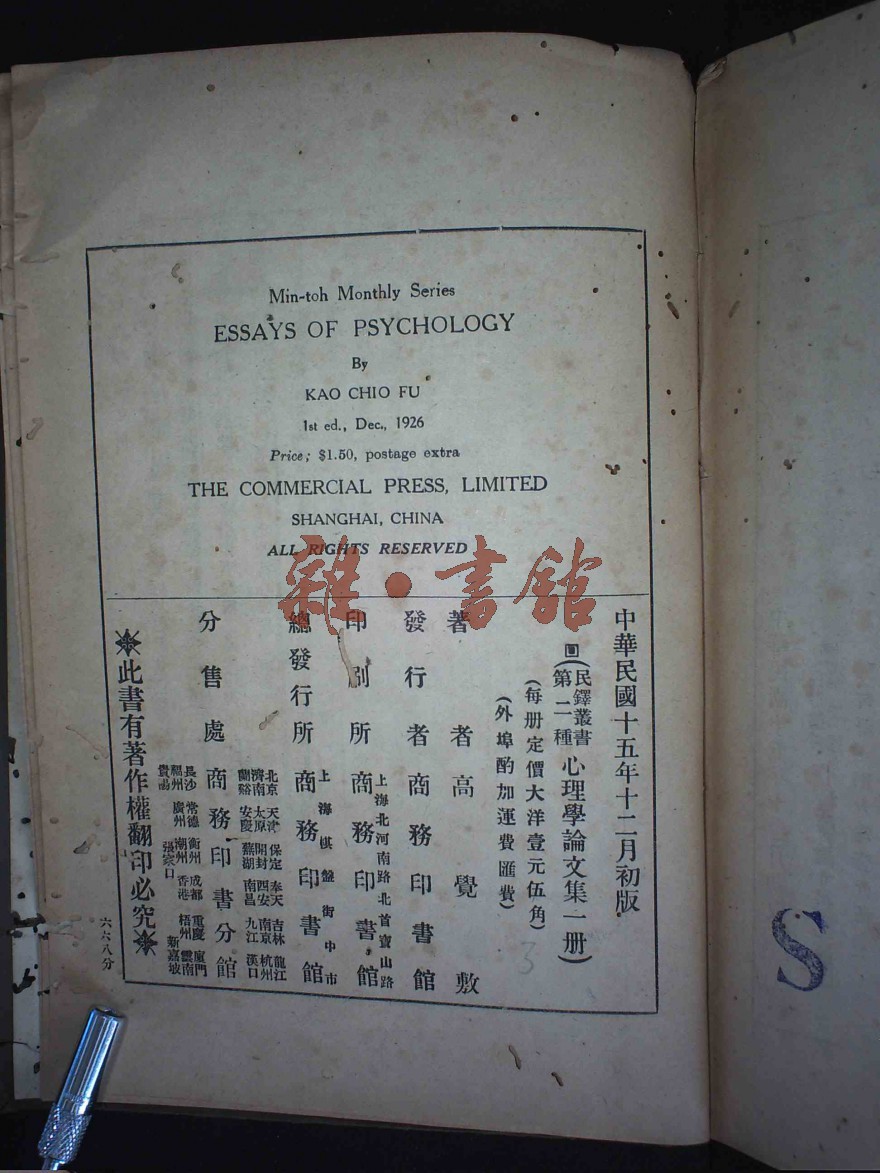 Min-toh Monthly Series
ESSAYS OF PSYCHOLOGY
By
KAO CHIO FU
1st ed., Dec., 1926
Price; $1.50, postage extra
THE COMMERCIAL PRESS, LIMITED
SHANGHAI, CHINA
ALL RIGHTS RESERVED
雜·書館
中華民國十五年十二月初版
(民鐸叢書
第二種 心理學論文集一册)
(每册定價大洋壹元伍角)
(外埠酌加運費匯費)
著者 高覺敷
發行者 商務印書館
印刷所 上海北河南路北首寶山路 商務印書館
總發行所 上海棋盤街中市 商務印書館
分售處 商務印書分館
北京 天津 保定 奉天 吉林 龍江
濟南 太原 開封 西安 南京 杭州
蘭谿 安慶 蕪湖 南昌 九江 漢口
長沙 常德 衡州 成都 重慶 廈門
福州 廣州 潮州 香港 梧州 雲南
貴陽 張家口 新嘉坡
此書有著作權翻印必究
六六八分
3
S